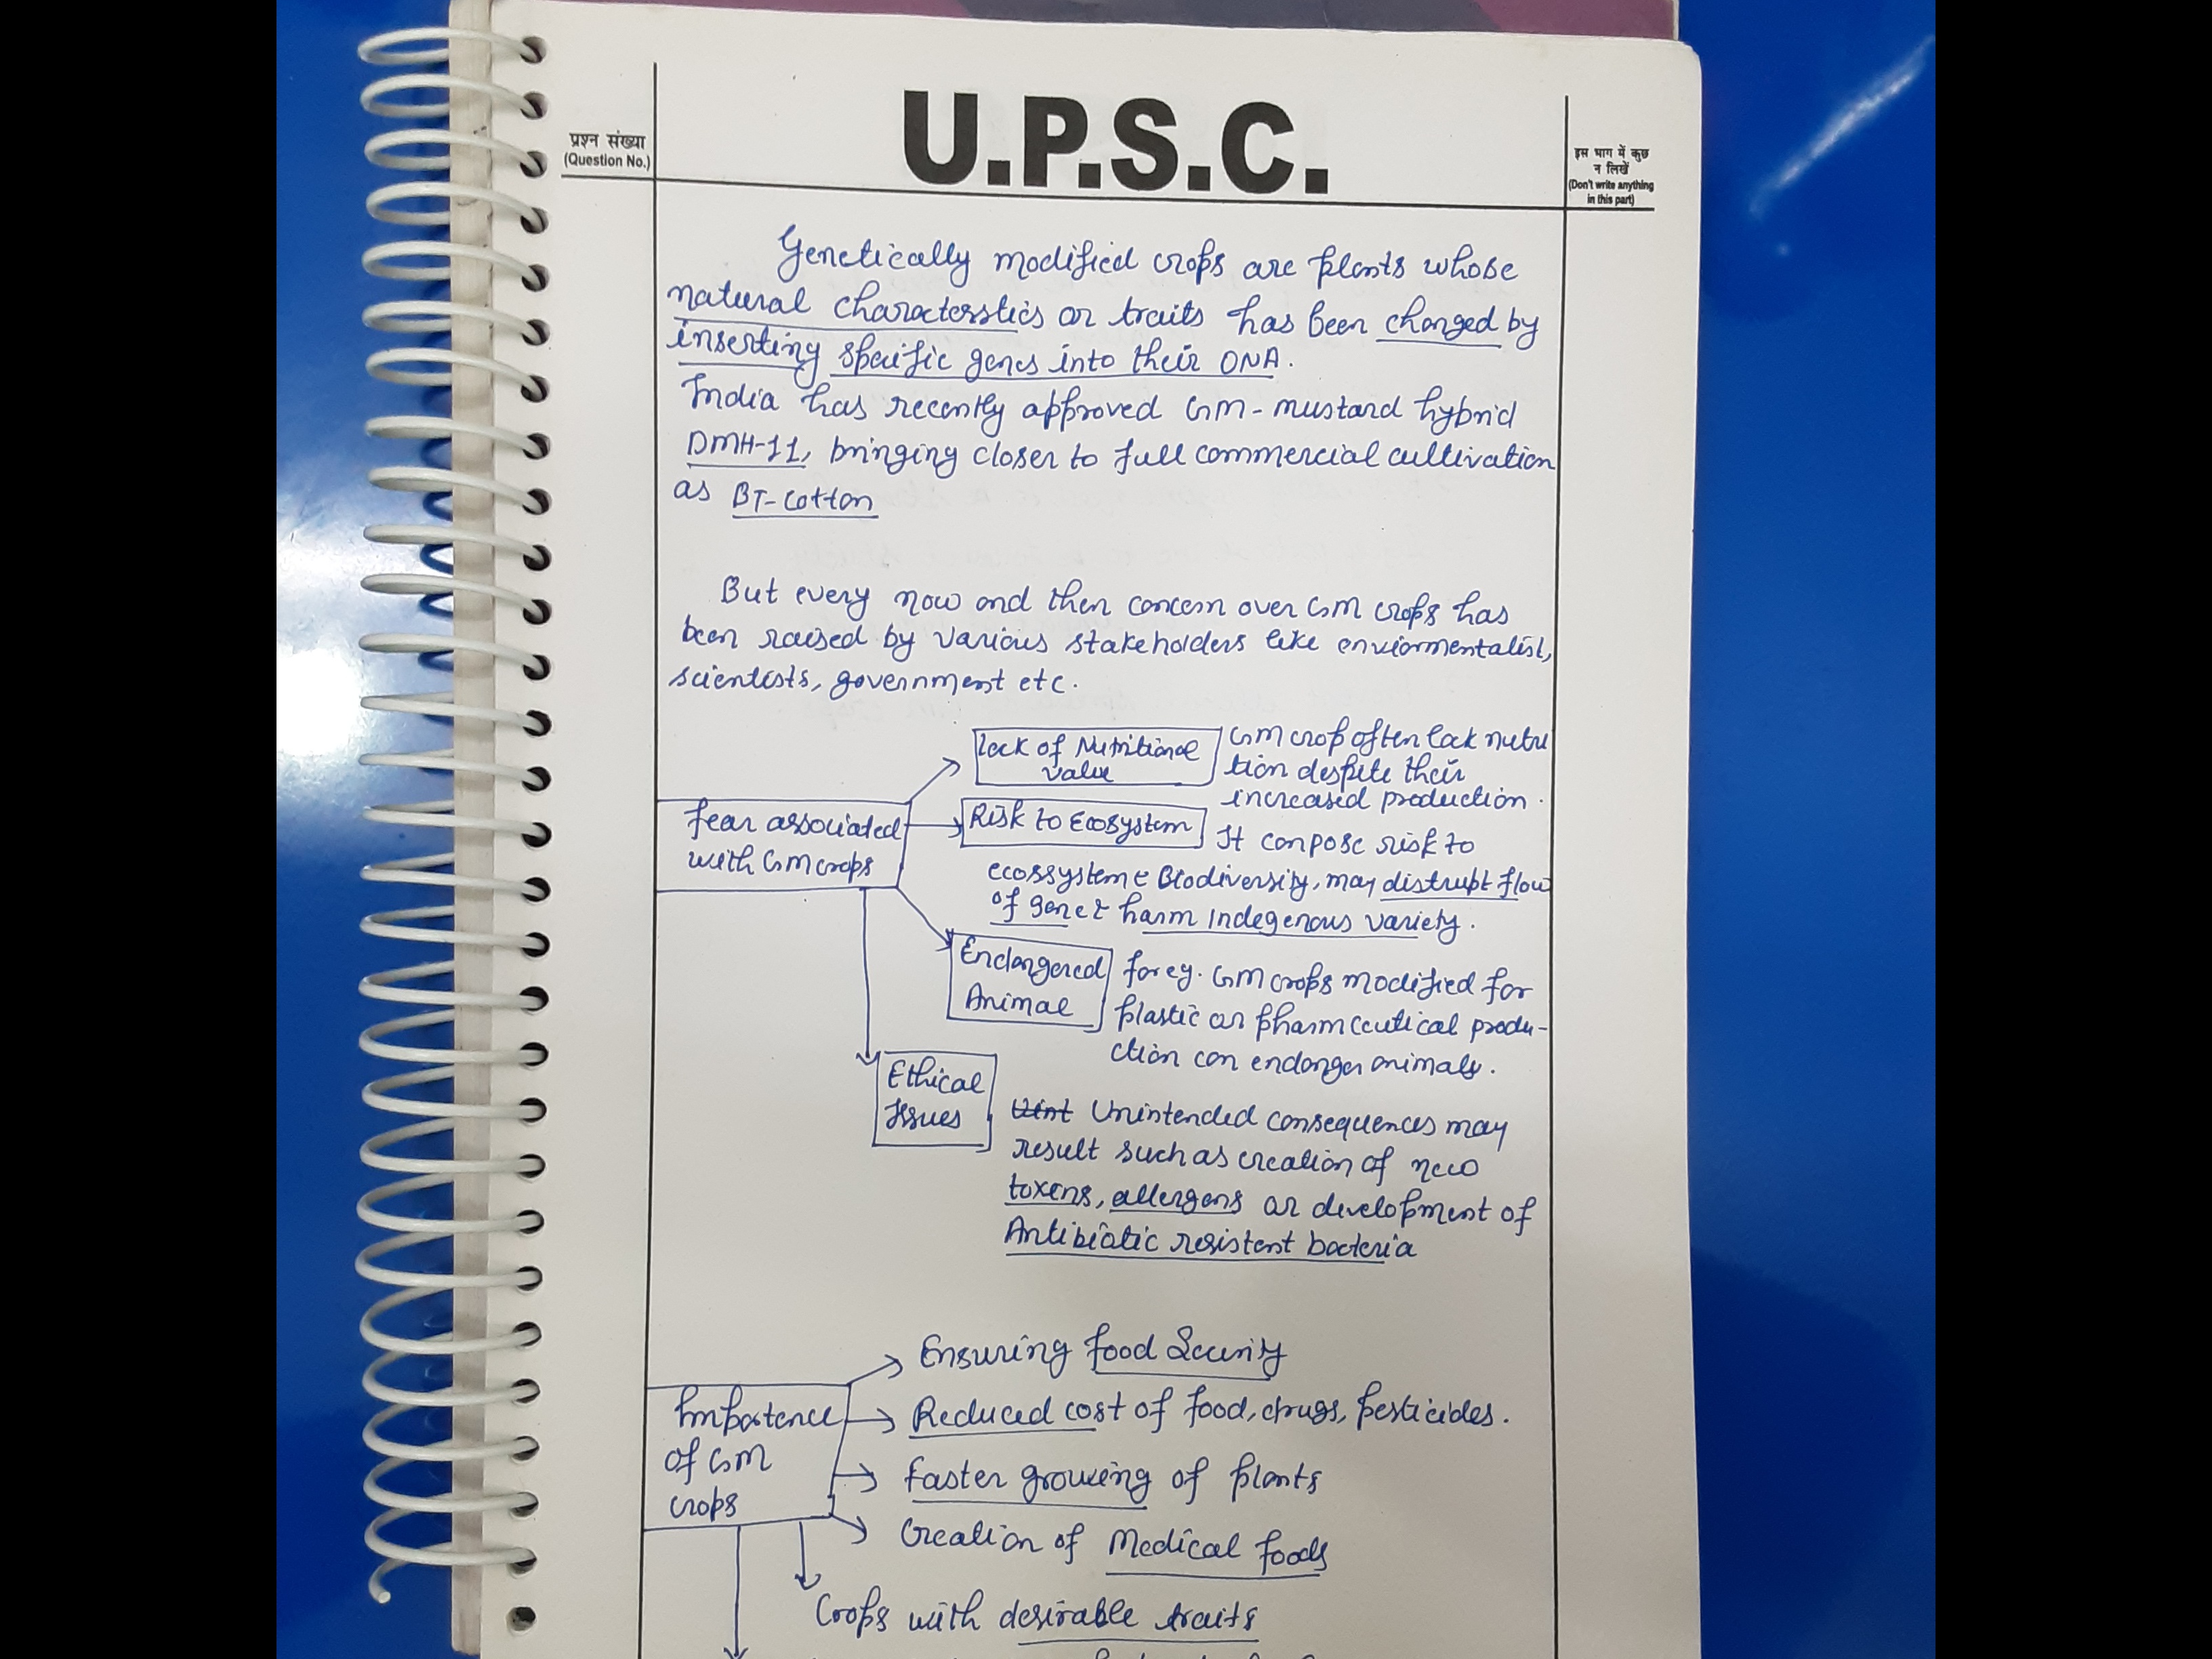 U.P.S.C.
प्रश्न संख्या
(Question No.)
इस भाग में कुछ
न लिखें
(Don't write anything
in this part)
Genetically modified crops are plants whose
natural characterstics or traits has been changed by
inserting specific genes into their DNA.
India has recently approved GM-mustard hybrid
DMH-11, bringing closer to full commercial cultivation
as BT-Cotton
But every now and then concern over GM crops has
been raised by various stakeholders like enviormentalist,
scientists, government etc.
Fear associated
with GM crops
Lack of Nutritional
value
GM crop often lack nutri
tion despite their
increased production.
Risk to Ecosystem
It can pose risk to
ecossystem & Biodiversity, may distrupt flow
of gene & harm Indegenous variety.
Endangered
Animal
for eg. GM crops modified for
plastic or pharmceutical produ-
ction can endanger animals.
Ethical
Issues
Unintended consequences may
result such as creation of new
toxens, allergens or development of
Antibiotic resistent bacteria
Importence
of GM
crops
Ensuring food Security
Reduced cost of food, drugs, pesticides.
Faster growing of plants
Creation of Medical foods
Crops with desirable traits